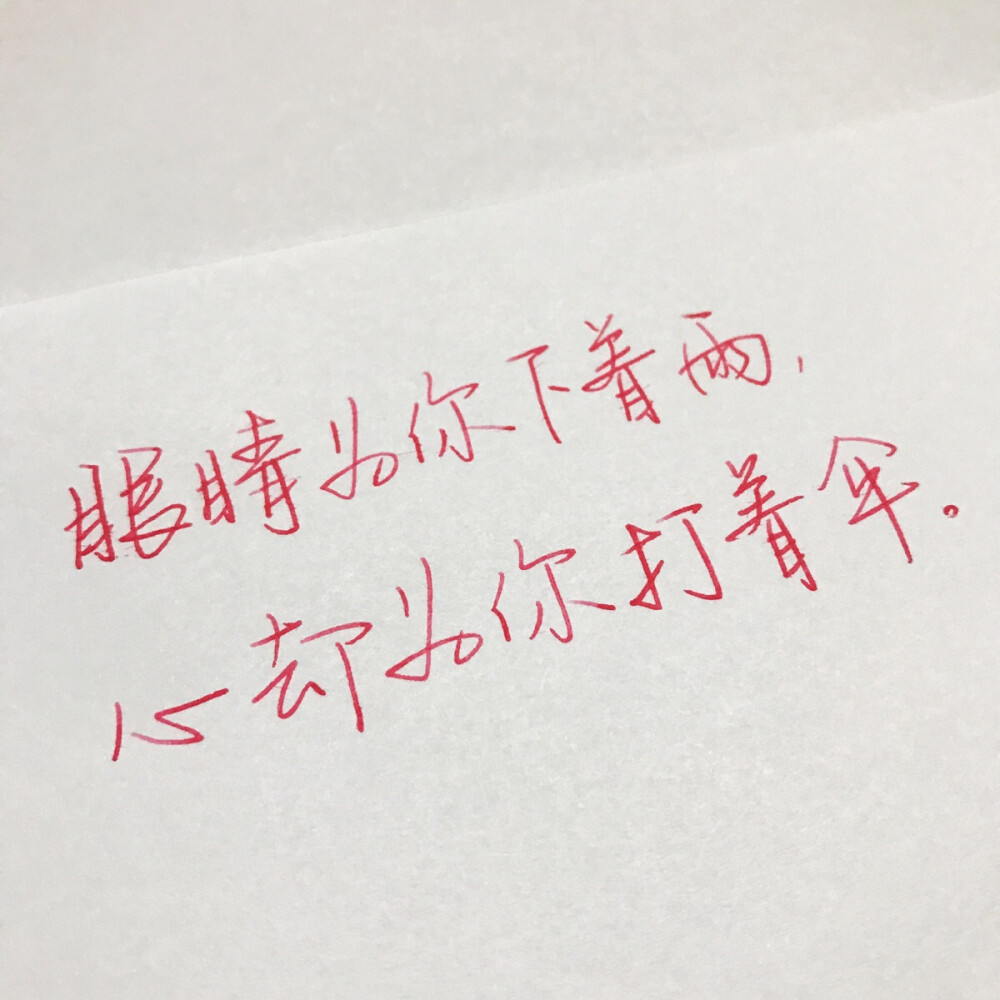 眼睛为你下着雨,
心却为你打着伞.